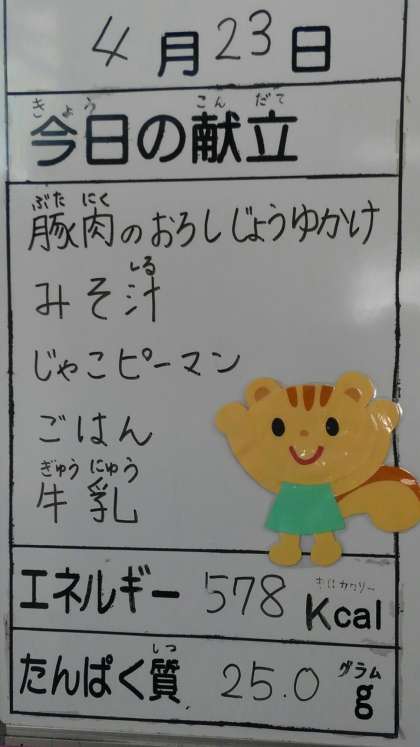 4月23日
きょう こんだて
今日の献立
ぶた にく
豚肉のおろしじょうゆかけ
しる
みそ汁
じゃこピーマン
ごはん
ぎゅう にゅう
牛乳
キロカロリー
エネルギー 578 Kcal
しつ グラム
たんぱく質 25.0 g